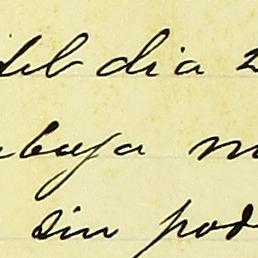 del dia 2
abaja m
sin pod